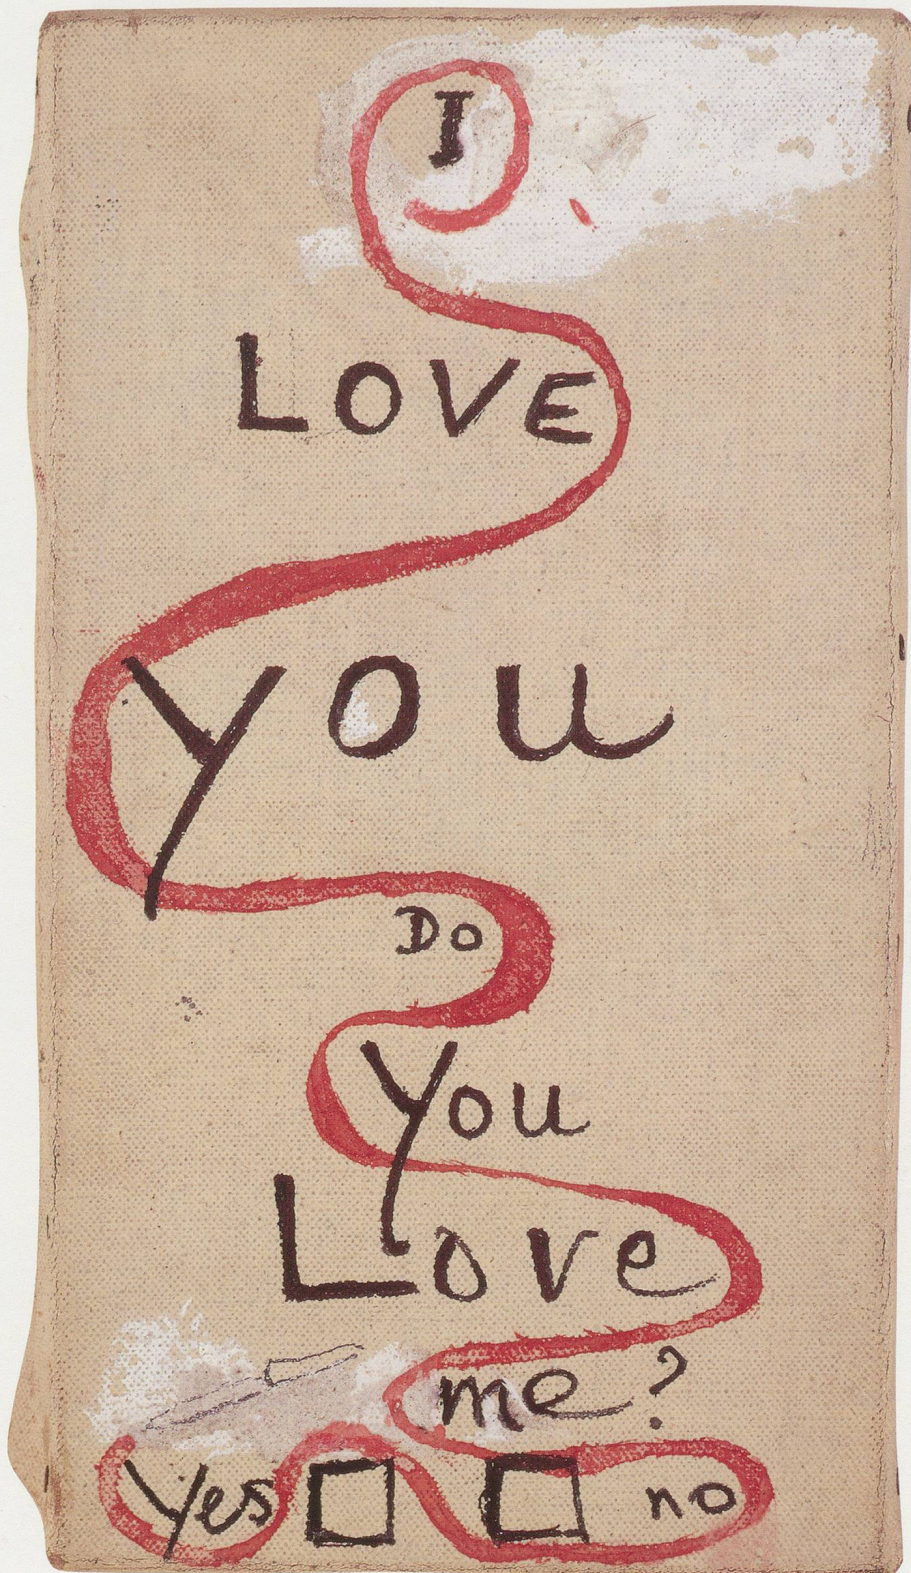 I
LOVE
you
Do
You
Love
me?
Yes no